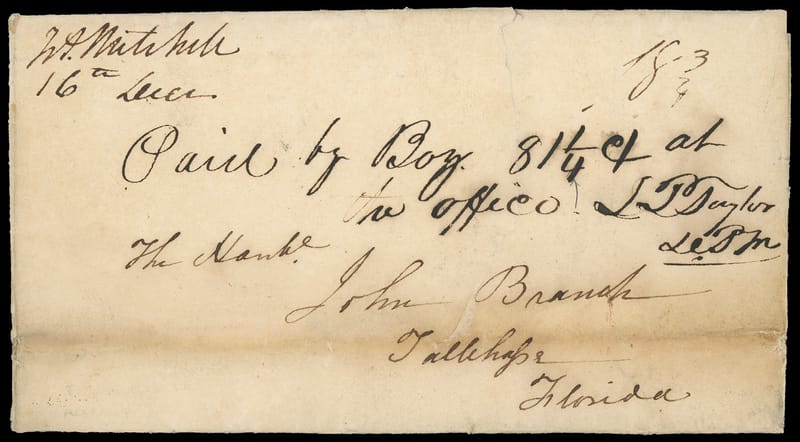 Ft. Mitchell
16th Decr.
18 3/4
Paid by Boy. 81 1/4 ct at
the office. L P Taylor
De. P M
The Honble.
John Branch
Tallehasse
Florida